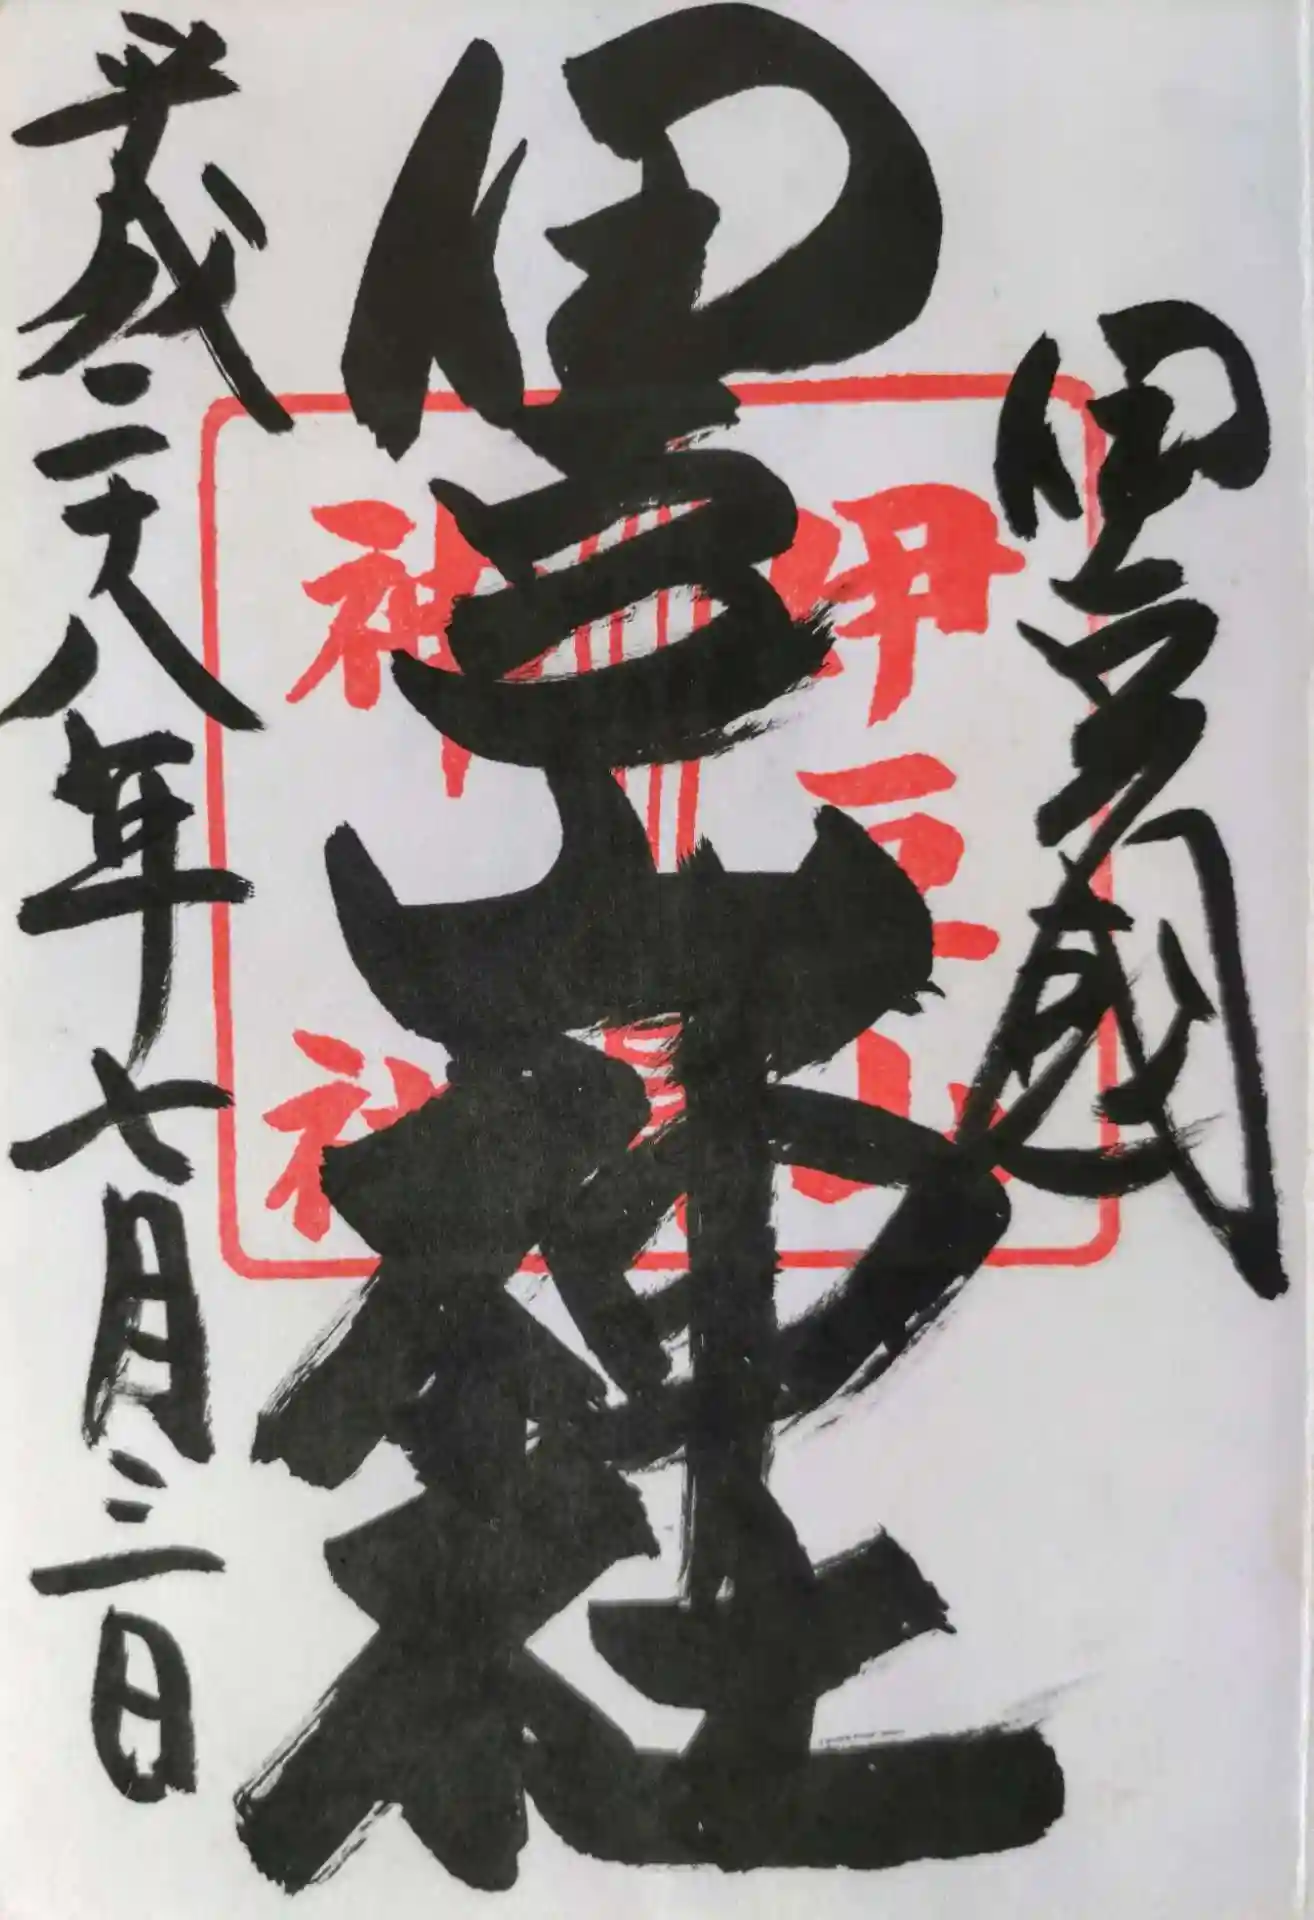 伊豆國
伊豆山神社
平成二十八年七月三日
伊豆山
神社